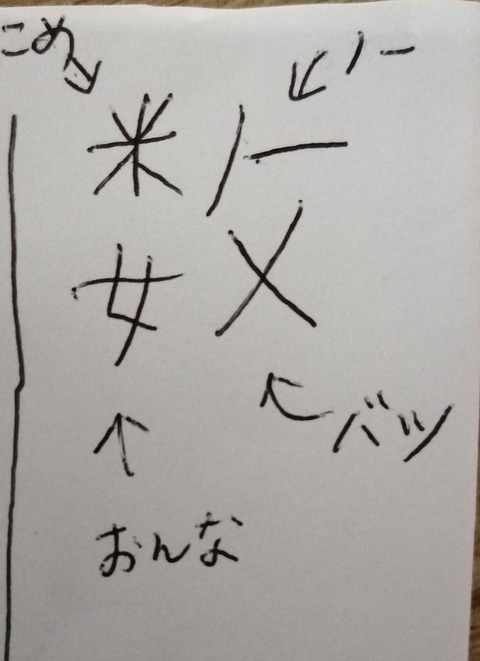 こめ ノー
米 ノー
女 メ
バツ
おんな